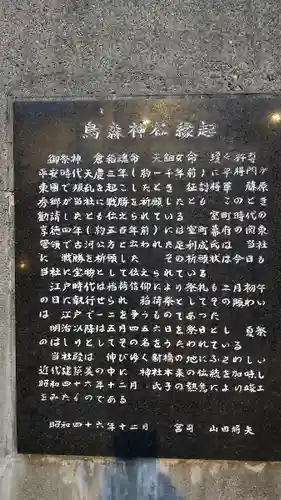 烏森神社縁起
御祭神 倉稲魂命 天鈿女命 瓊々杵尊
平安時代天慶三年(約一千年前)に平将門が
東国で叛乱を起こしたとき 征討将軍 藤原
秀郷が当社に戦勝を祈願したとも このとき
勧請したとも伝えられている 室町時代の
享徳四年(約五百年前)には室町幕府の関東
管領で古河公方と云われた足利成氏は 当社
に 戦勝を祈願した その祈願状は今日も
当社に宝物として伝えられている
江戸時代は稲荷信仰により祭礼も二月初午
の日に執行せられ 稲荷祭としてその賑わい
は 江戸で一ニを争うものであった
明治以降は五月四五六日を祭日とし 夏祭
のはしりとしてその名をうたわれている
当社殿は 伸びゆく新橋の地にふさわしい
近代建築美の中に 神社本来の伝統を加味し
昭和四十六年十二月 氏子の熱意により竣工
をみたものである
昭和四十六年十二月 宮司 山田